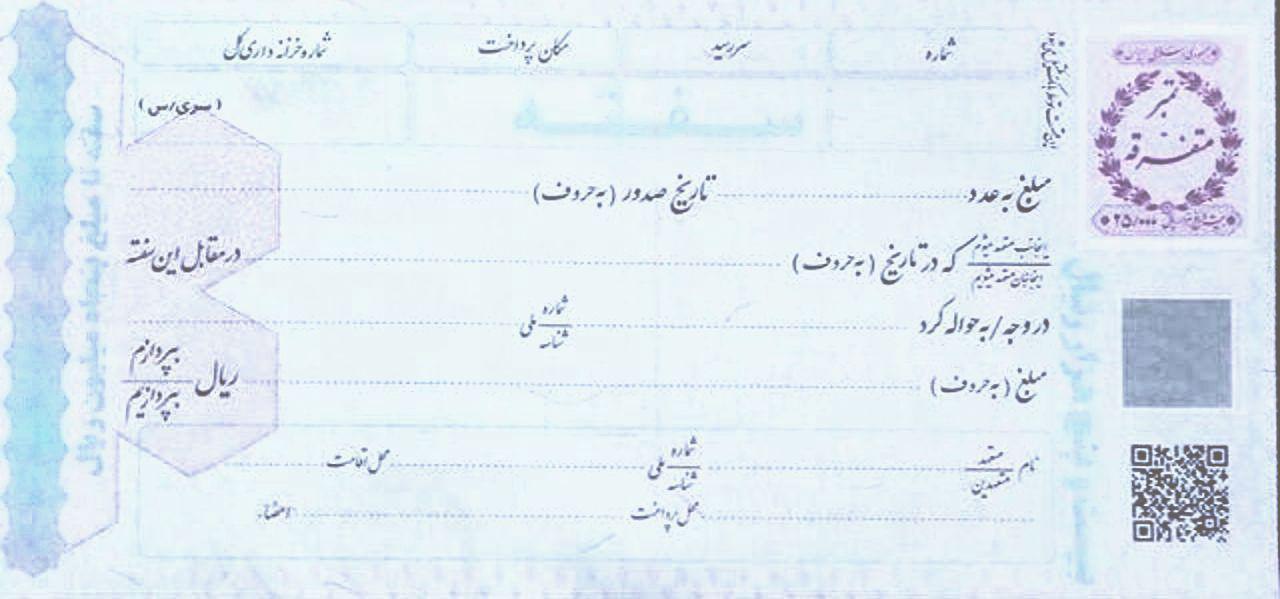 شماره سررسید مکان پرداخت شماره خزانه داری کل
سفته
(سری/س)
جمهوری اسلامی ایران
تمبر
متفرقه
۲۵/۰۰۰
مبلغ به عدد تاریخ صدور (به حروف)
اینجانب متعهد میشوم
اینجانبان متعهد میشویم
که در تاریخ (به حروف) در مقابل این سفته
در وجه / به حواله کرد شماره ملی
شناسه
مبلغ (به حروف) ریال بپردازم
بپردازیم
نام متعهد شماره ملی محل اقامت
متعهدین شناسه
محل پرداخت امضاء
سفته تا مبلغ پنجاه میلیون ریال
بیست و پنج هزار ریال